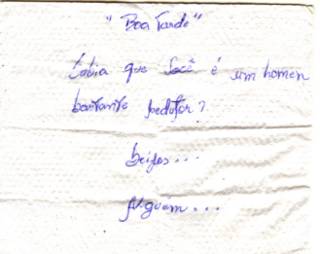 "Boa Tarde"
Sabia que você é um homen
bastante sedutor?
beijos...
Alguém...